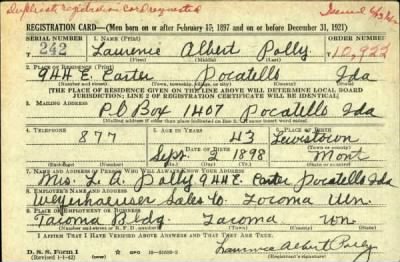 Duplicate registration card requested
REGISTRATION CARD—(Men born on or after February 17, 1897 and on or before December 31, 1921)
SERIAL NUMBER
1. NAME (Print)
ORDER NUMBER
242
Laurence Albert Polly
10,922
(First) (Middle) (Last)
2. PLACE OF RESIDENCE (Print)
944 E. Carter Pocatello Ida
(Number and street) (Town, township, village, or city) (County) (State)
[THE PLACE OF RESIDENCE GIVEN ON THE LINE ABOVE WILL DETERMINE LOCAL BOARD
JURISDICTION; LINE 2 OF REGISTRATION CERTIFICATE WILL BE IDENTICAL]
3. MAILING ADDRESS
P.O Box 1407 Pocatello Ida
(Mailing address if other than place indicated on line 2. If same insert word same)
4. TELEPHONE
5. AGE IN YEARS
6. PLACE OF BIRTH
877
43
Lewistown
DATE OF BIRTH
(Town or county)
Sept. 2 1898
Mont
(Exchange) (Number)
(Mo.) (Day) (Yr.)
(State or country)
7. NAME AND ADDRESS OF PERSON WHO WILL ALWAYS KNOW YOUR ADDRESS
Mrs. L. A. Polly 944 E Carter Pocatello Ida
8. EMPLOYER'S NAME AND ADDRESS
Weyerhaeuser Sales Co. Tacoma Wn.
9. PLACE OF EMPLOYMENT OR BUSINESS
Tacoma Bldg. Tacoma Wn.
(Number and street or R. F. D. number) (Town) (County) (State)
I AFFIRM THAT I HAVE VERIFIED ABOVE ANSWERS AND THAT THEY ARE TRUE.
D. S. S. Form 1
(Revised 1-1-42)
(over)
GPO
Laurence Albert Polly
(Registrant's signature)